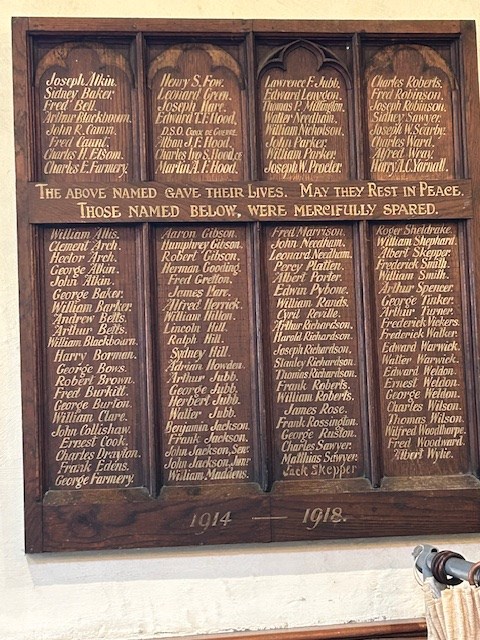 Joseph Atkin.
Sidney Baker.
Fred Bell.
Arthur Blackbourn.
John R. Camm.
Fred Caunt.
Charles H. Elsom.
Charles E. Farmery.
Henry S. Fow.
Leonard Green.
Joseph Hare.
Edward T.F. Hood,
D.S.O. Croix de Guerre.
Alban J.E. Hood.
Charles Ivo S. Hood, C.F.
Martin A.F. Hood.
Lawrence F. Jubb.
Edward Lenyton.
Thomas P. Millington.
Walter Needham.
William Nicholson.
John Parker.
William Parker.
Joseph W. Procter.
Charles Roberts.
Fred Robinson.
Joseph Robinson.
Sidney Sawyer.
Joseph W. Scarby.
Charles Ward.
Alfred Wray.
Harry A.C. Yarnall.
The above named gave their Lives. May they Rest in Peace.
Those named below, were mercifully spared.
William Allis.
Clement Arch.
Hector Arch.
George Atkin.
John Atkin.
George Baker.
William Barker.
Andrew Betts.
Arthur Betts.
William Blackbourn.
Harry Borman.
George Bows.
Robert Brown.
Fred Burkitt.
George Burton.
William Clare.
John Collishaw.
Ernest Cook.
Charles Drayton.
Frank Edens.
George Farmery.
Aaron Gibson.
Humphrey Gibson.
Robert Gibson.
Herman Gooding.
Fred Gretton.
James Harr.
Alfred Herrick.
William Hilton.
Lincoln Hill.
Ralph Hill.
Sydney Hill.
Adrian Howden.
Arthur Jubb.
George Jubb.
Herbert Jubb.
Walter Jubb.
Benjamin Jackson.
Frank Jackson.
John Jackson, Senr.
John Jackson, Junr.
William Maddens.
Fred Marrison.
John Needham.
Leonard Needham.
Percy Platten.
Albert Porter.
Edwin Pybone.
William Rands.
Cyril Reville.
Arthur Richardson.
Harold Richardson.
Joseph Richardson.
Stanley Richardson.
Thomas Richardson.
Frank Roberts.
William Roberts.
James Rose.
Frank Rossington.
George Ruston.
Charles Sawyer.
Matthias Sawyer.
Jack Skepper
Roger Sheldrake.
William Shephard.
Albert Skepper.
Frederick Smith.
William Smith.
Arthur Spencer.
George Tinker.
Arthur Turner.
Frederick Vickers.
Frederick Walker.
Edward Warwick.
Walter Warwick.
Edward Weldon.
Ernest Weldon.
George Weldon.
Charles Wilson.
Thomas Wilson.
Wilfred Woolthorpe.
Fred Woodward.
Albert Wylie.
1914 — 1918.